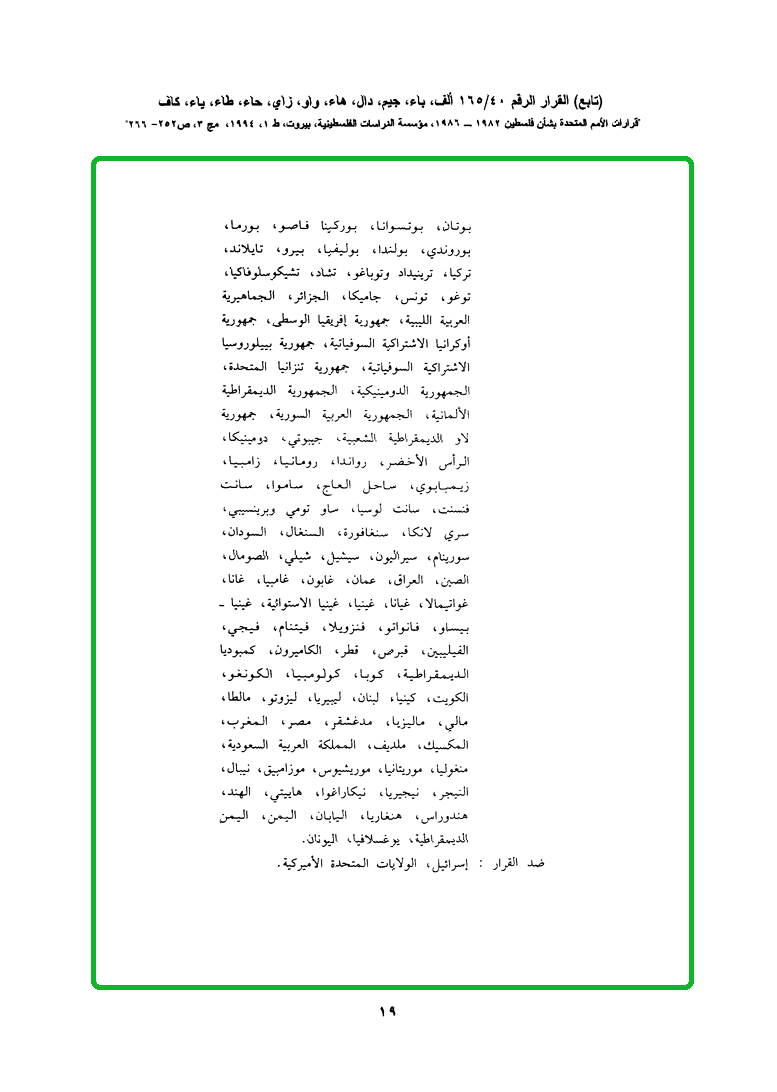 (تابع) القرار الرقم ١٦٥/٤٠ ألف، باء، جيم، دال، هاء، واو، زاي، حاء، طاء، ياء، كاف
"قرارات الأمم المتحدة بشأن فلسطين ١٩٨٢ ــ ١٩٨٦، مؤسسة الدراسات الفلسطينية، بيروت، ط ١، ١٩٩٤، مج ٣، ص٢٥٢- ٢٦٦"
بوتان، بوتسوانا، بوركينا فاصو، بورما،
بوروندي، بولندا، بوليفيا، بيرو، تايلاند،
تركيا، ترينيداد وتوباغو، تشاد، تشيكوسلوفاكيا،
توغو، تونس، جاميكا، الجزائر، الجماهيرية
العربية الليبية، جمهورية إفريقيا الوسطى، جمهورية
أوكرانيا الاشتراكية السوفياتية، جمهورية بييلوروسيا
الاشتراكية السوفياتية، جمهورية تنزانيا المتحدة،
الجمهورية الدومينيكية، الجمهورية الديمقراطية
الألمانية، الجمهورية العربية السورية، جمهورية
لاو الديمقراطية الشعبية، جيبوتي، دومينيكا،
الرأس الأخضر، رواندا، رومانيا، زامبيا،
زيمبابوي، ساحل العاج، ساموا، سانت
فنسنت، سانت لوسيا، ساو تومي وبرينسيبي،
سري لانكا، سنغافورة، السنغال، السودان،
سورينام، سيراليون، سيشيل، شيلي، الصومال،
الصين، العراق، عمان، غابون، غامبيا، غانا،
غواتيمالا، غيانا، غينيا، غينيا الاستوائية، غينيا ـ
بيساو، فانواتو، فنزويلا، فيتنام، فيجي،
الفيليبين، قبرص، قطر، الكاميرون، كمبوديا
الديمقراطية، كوبا، كولومبيا، الكونغو،
الكويت، كينيا، لبنان، ليبيريا، ليزوتو، مالطا،
مالي، ماليزيا، مدغشقر، مصر، المغرب،
المكسيك، ملديف، المملكة العربية السعودية،
منغوليا، موريتانيا، موريشيوس، موزامبيق، نيبال،
النيجر، نيجيريا، نيكاراغوا، هاييتي، الهند،
هندوراس، هنغاريا، اليابان، اليمن، اليمن
الديمقراطية، يوغسلافيا، اليونان.
ضد القرار : إسرائيل، الولايات المتحدة الأميركية.
١٩